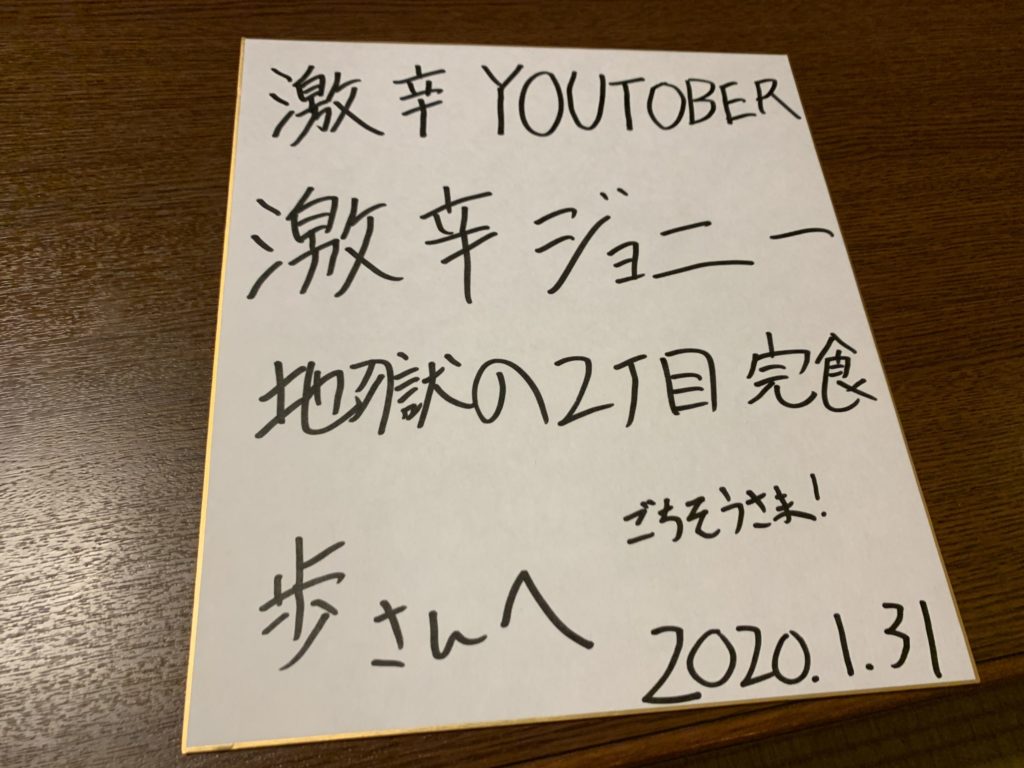 激辛 YOUTOBER
激辛ジョニー
地獄の2丁目 完食
ごちそうさま!
歩さんへ
2020.1.31